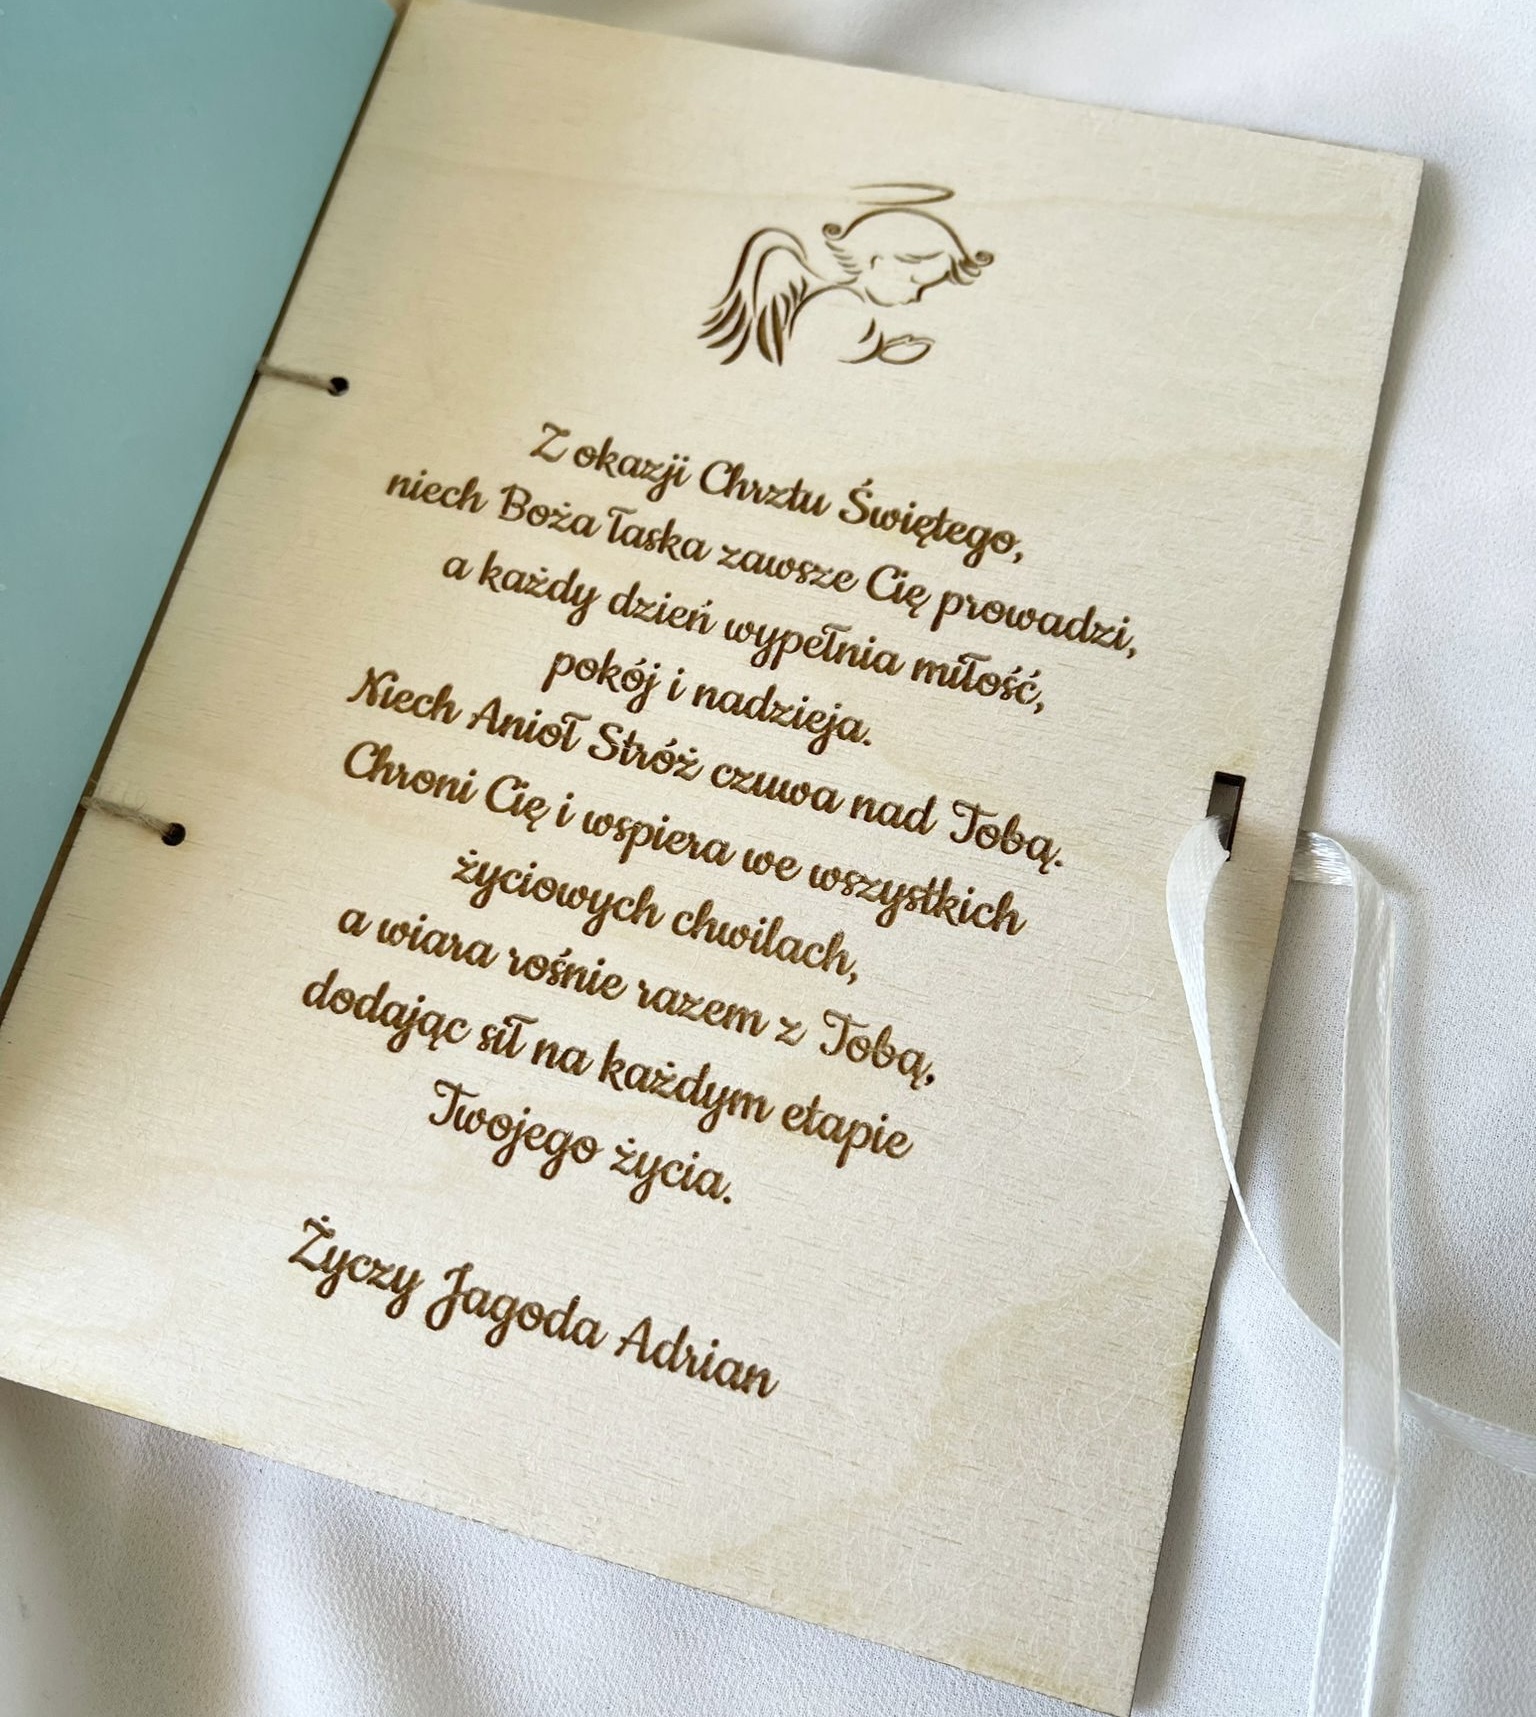 Z okazji Chrztu Świętego,
niech Boża łaska zawsze Cię prowadzi,
a każdy dzień wypełnia miłość,
pokój i nadzieja.
Niech Anioł Stróż czuwa nad Tobą.
Chroni Cię i wspiera we wszystkich
życiowych chwilach,
a wiara rośnie razem z Tobą,
dodając sił na każdym etapie
Twojego życia.
Życzy Jagoda Adrian